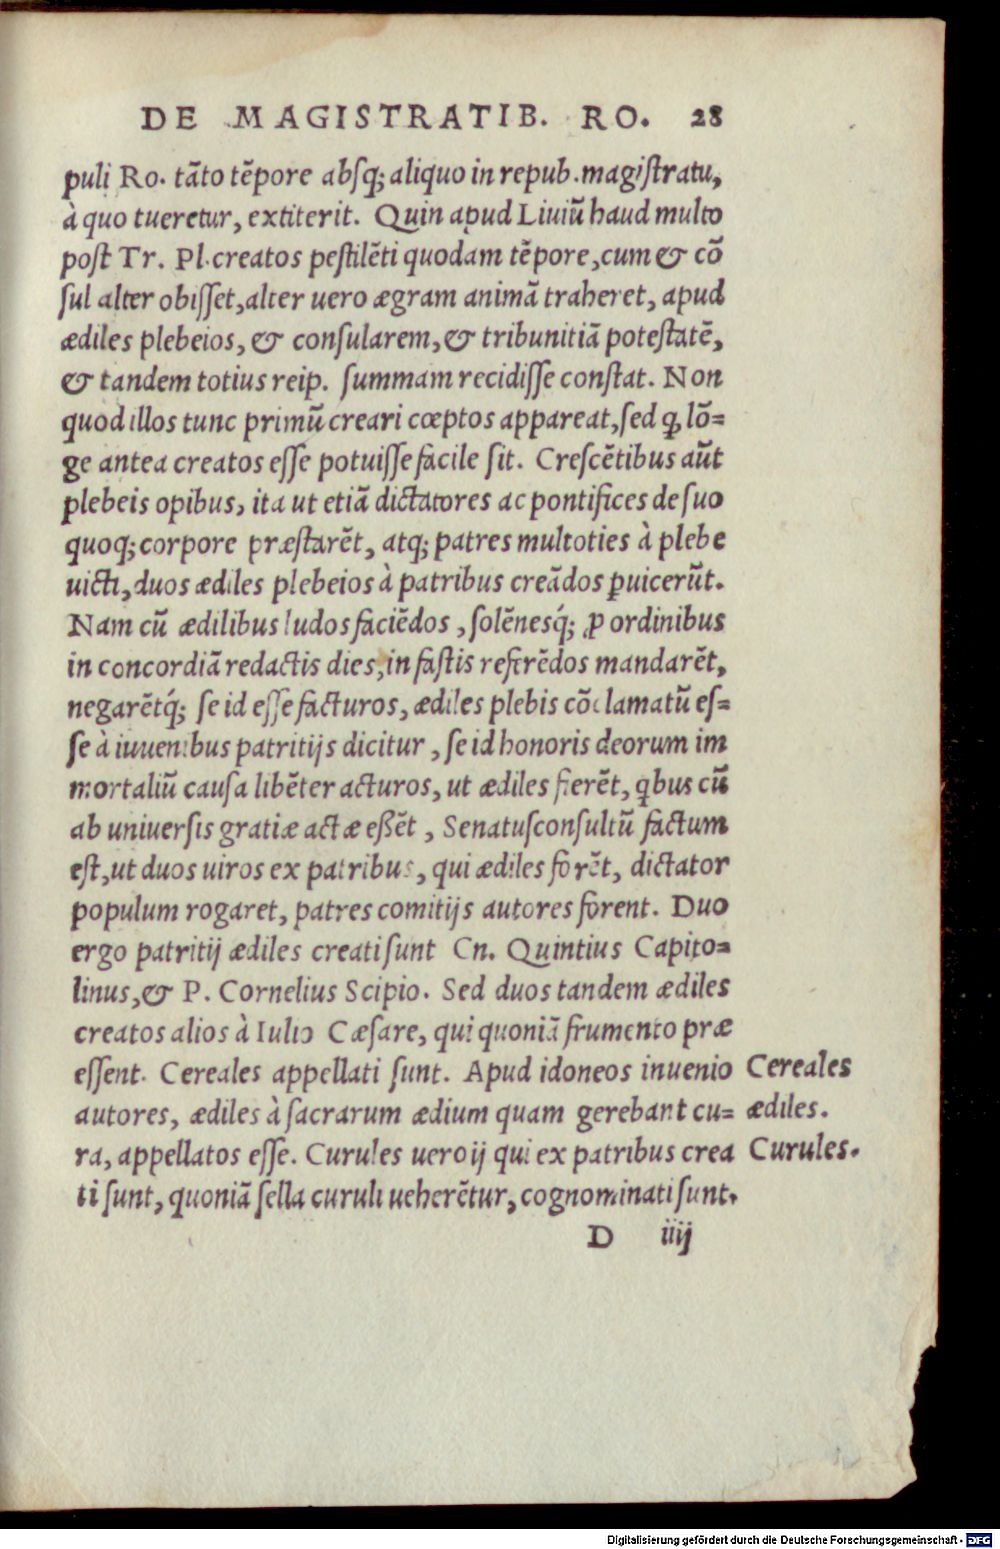 DE MAGISTRATIB. RO. 28
puli Ro. tãto tẽpore absq; aliquo in repub. magistratu,
à quo tueretur, extiterit. Quin apud Liuiũ haud multo
post Tr. Pl. creatos pestilẽti quodam tẽpore, cum & cõ
sul alter obisset, alter uero ægram animã traheret, apud
ædiles plebeios, & consularem, & tribunitiã potestatẽ,
& tandem totius reip. summam recidisse constat. Non
quod illos tunc primũ creari cœptos appareat, sed ꝙ lõ=
ge antea creatos esse potuisse facile sit. Crescẽtibus aũt
plebeis opibus, ita ut etiã dictatores ac pontifices de suo
quoq; corpore præstarẽt, atq; patres multoties à plebe
uicti, duos ædiles plebeios à patribus creãdos ꝑuicerũt.
Nam cũ ædilibus ludos faciẽdos, solẽnesq́; ꝓ ordinibus
in concordiã redactis dies, in fastis referẽdos mandarẽt,
negarẽtq́; se id esse facturos, ædiles plebis cõclamatũ es=
se à iuuenibus patritijs dicitur, se id honoris deorum im
mortaliũ causa libẽter acturos, ut ædiles fierẽt, qbus cũ
ab uniuersis gratiæ actæ eßẽt, Senatusconsultũ factum
est, ut duos uiros ex patribus, qui ædiles forẽt, dictator
populum rogaret, patres comitijs autores forent. Duo
ergo patritij ædiles creati sunt Cn. Quintius Capito=
linus, & P. Cornelius Scipio. Sed duos tandem ædiles
creatos alios à Iulio Cæsare, qui quoniã frumento præ
essent. Cereales appellati sunt. Apud idoneos inuenio Cereales
autores, ædiles à sacrarum ædium quam gerebant cu= ædiles.
ra, appellatos esse. Curules uero ij qui ex patribus crea Curules.
ti sunt, quoniã sella curuli ueherẽtur, cognominati sunt.
D iiij
Digitalisierung gefördert durch die Deutsche Forschungsgemeinschaft - DFG